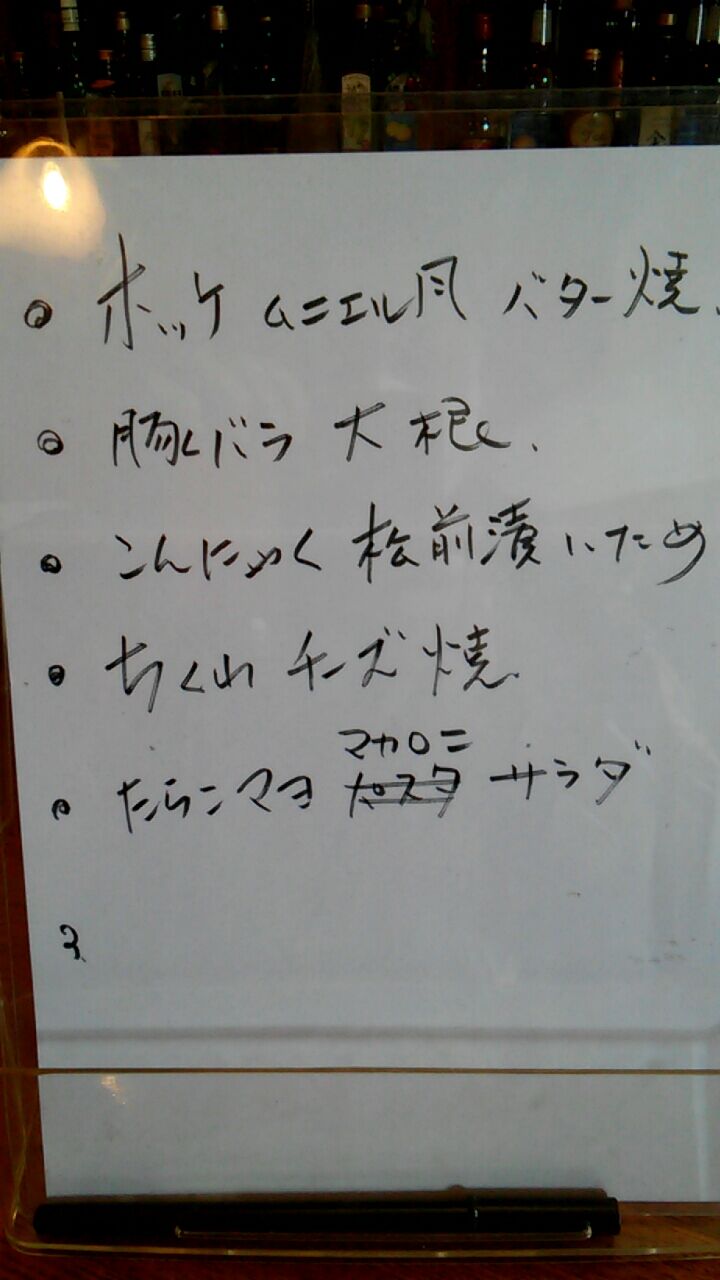 • ホッケ ムニエル風 バター焼
• 豚バラ 大根
• こんにゃく 松前漬いため
• ちくわ チーズ焼
マカロニ
• たらこマヨ パスタ サラダ